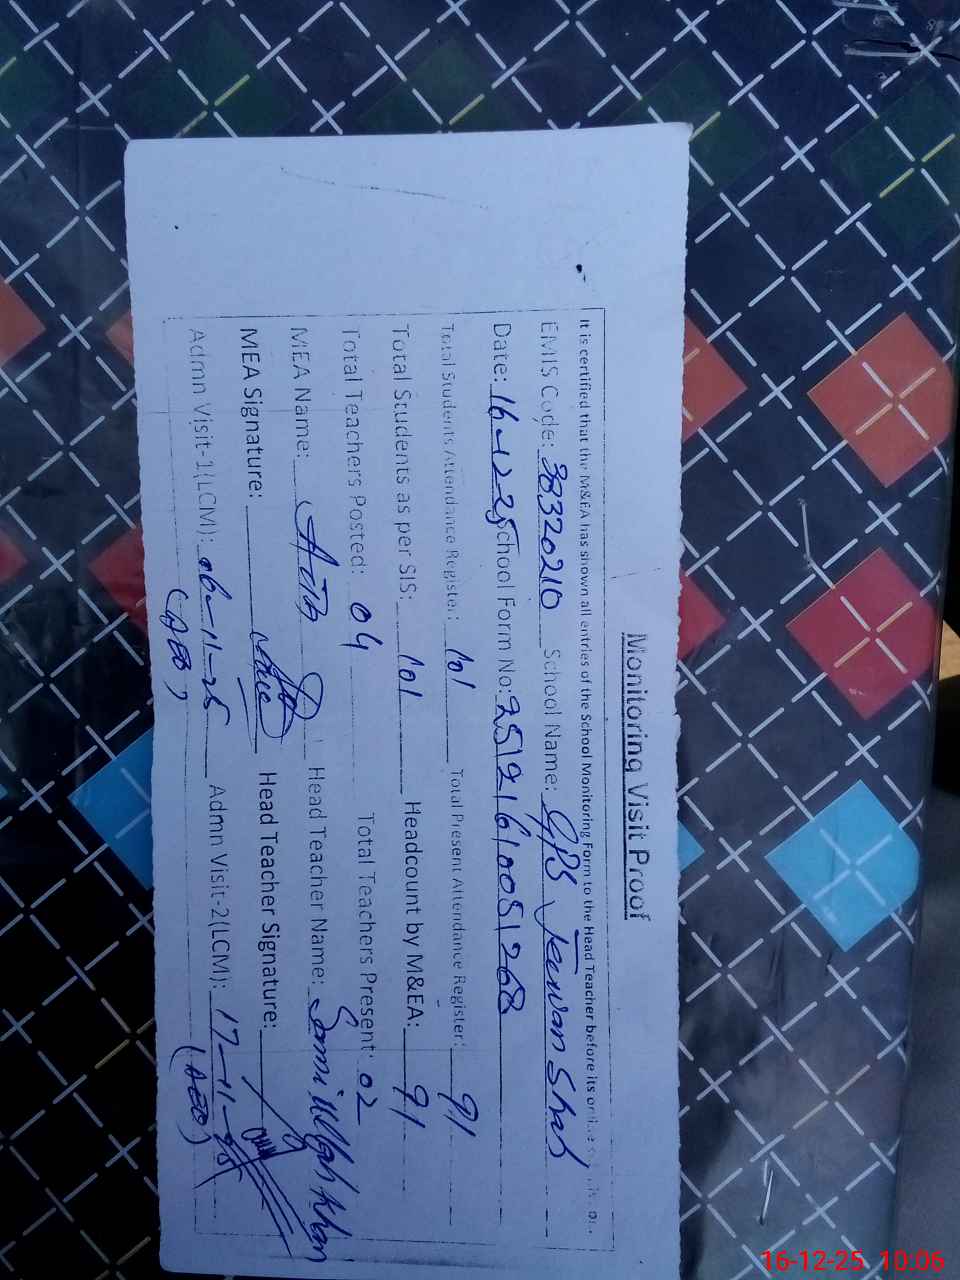 Monitoring Visit Proof
It is certified that the M&EA has shown all entries of the School Monitoring Form to the Head Teacher before its online
EMIS Code: 38320210 School Name: GPS Jeewan Shah
Date: 16-12-25 School Form No: 251921610051268
Total Students Attendance Register: 101 Total Present Attendance Register: 91
Total Students as per SIS: 101 Headcount by M&EA: 91
Total Teachers Posted: 04 Total Teachers Present: 02
MEA Name: Head Teacher Name: Sami Ullah Khan
MEA Signature: Head Teacher Signature:
Admn Visit-1(LCM): 06-11-25 Admn Visit-2(LCM): 17-11-25
(AEO) (AEO)
16-12-25 10:06